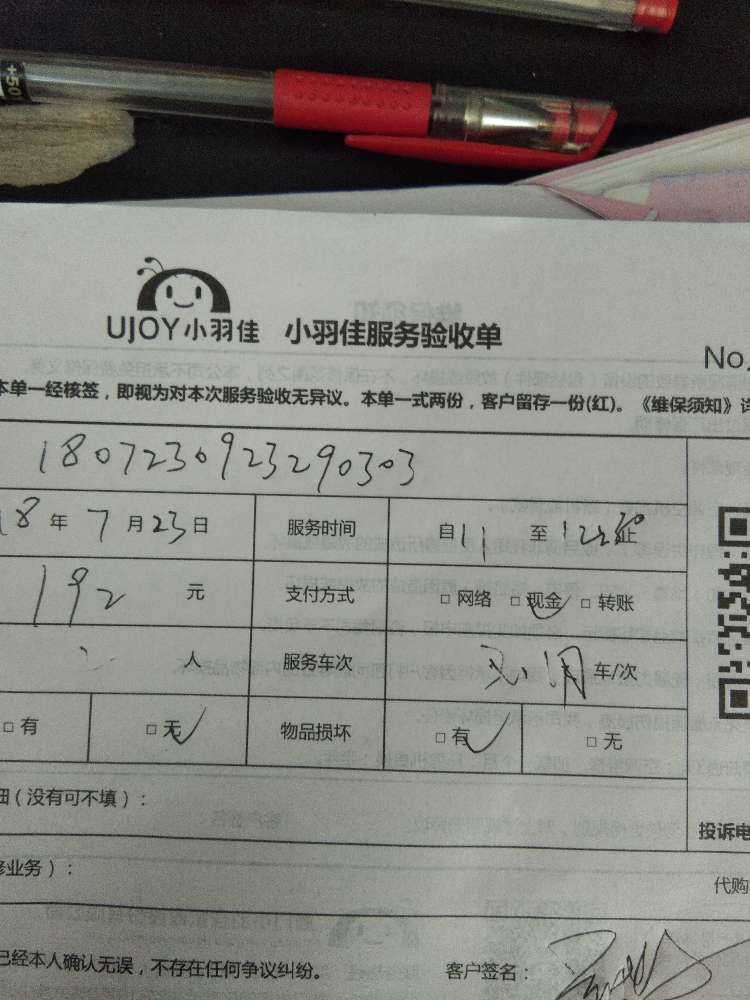 +50
UJOY小羽佳 小羽佳服务验收单
No.
本单一经核签，即视为对本次服务验收无异议。本单一式两份，客户留存一份(红)。《维保须知》详
1807230923290303
18年7月23日 服务时间 自11 至 止
192元 支付方式 □网络 □现金 □转账
人 服务车次 车/次
□有 □无 物品损坏 □有 □无
细（没有可不填）：
投诉电
修业务）：
代购
已经本人确认无误，不存在任何争议纠纷。 客户签名：